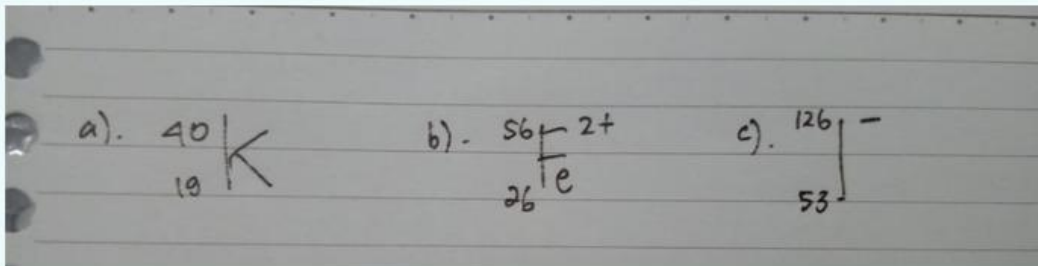 a). ⁴⁰₁₉K b). ⁵⁶₂₆Fe²⁺ c). ¹²⁶₅₃I⁻